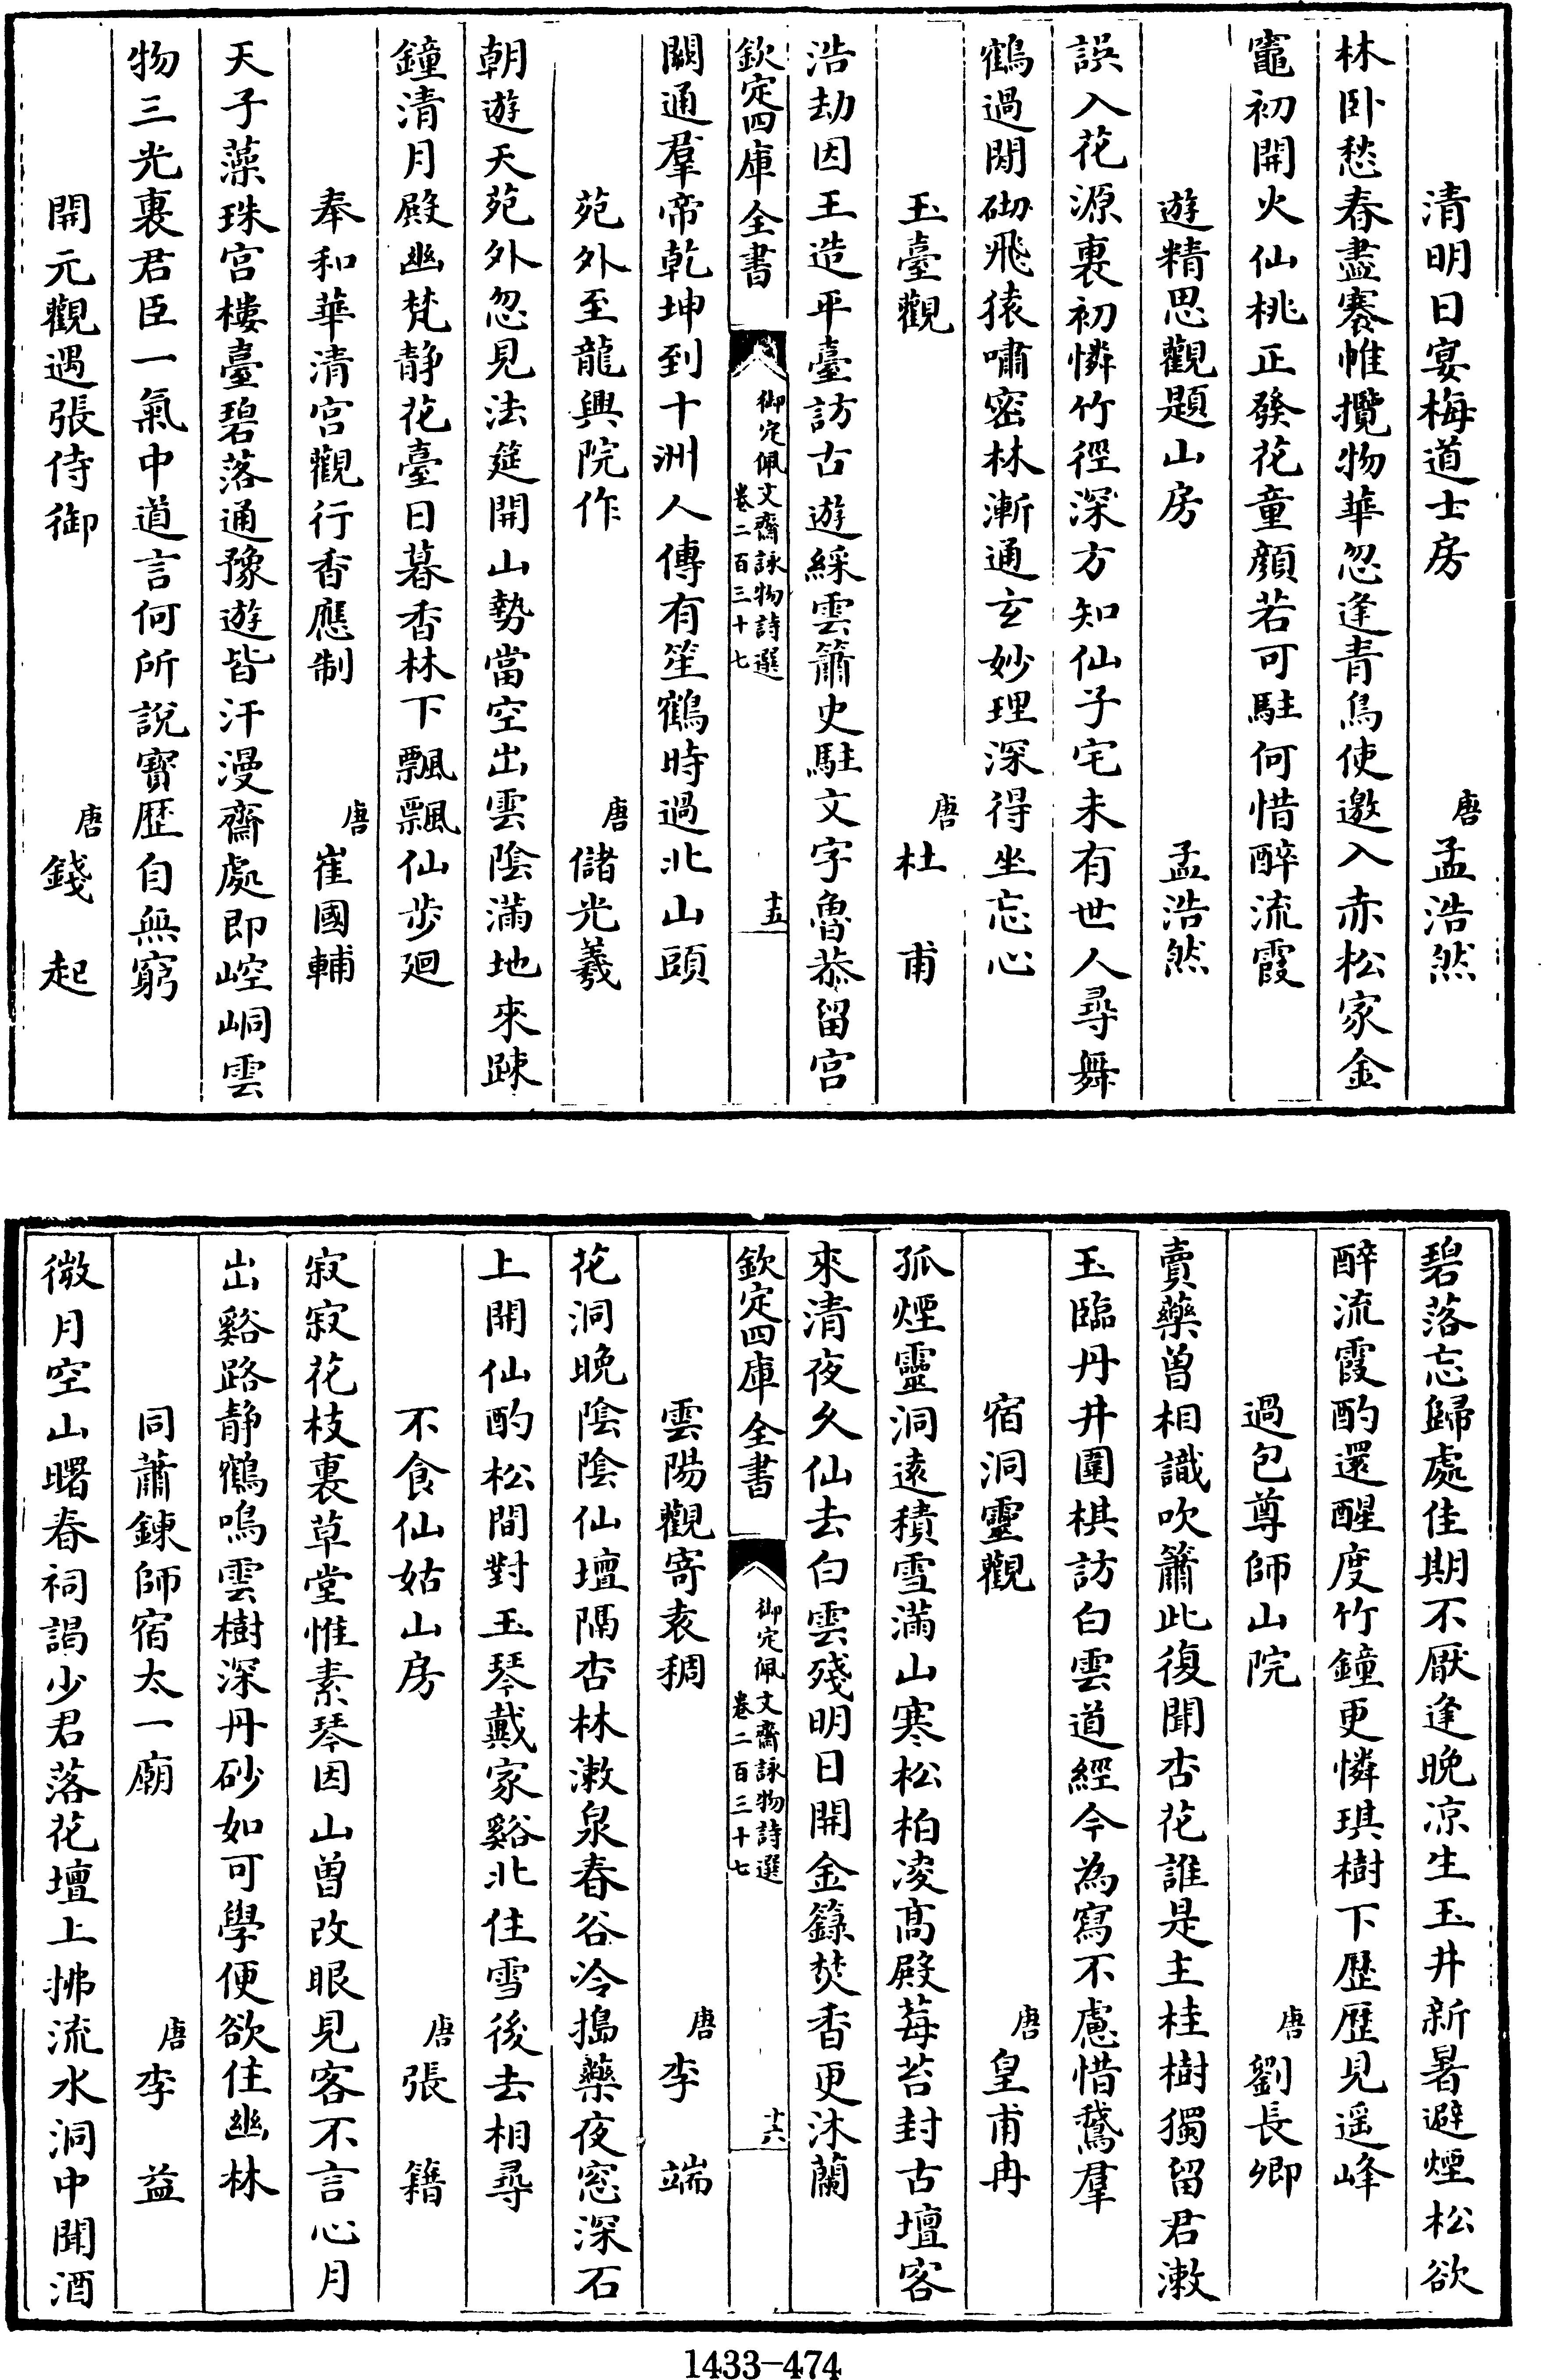 清明日宴梅道士房 唐 孟浩然
林卧愁春盡褰帷攬物華忽逢青鳥使邀入赤松家金
竈初開火仙桃正發花童顔若可駐何惜醉流霞
遊精思觀題山房 孟浩然
誤入花源裏初憐竹徑深方知仙子宅未有世人尋舞
鶴過閒砌飛猿嘯密林漸通玄妙理深得坐忘心
玉臺觀 唐 杜甫
浩劫因王造平臺訪古遊綵雲簫史駐文字魯恭留宫
欽定四庫全書 御定佩文齋詠物詩選 卷二百三十七 十五
闕通羣帝乾坤到十洲人傳有笙鶴時過北山頭
苑外至龍興院作 唐 儲光羲
朝遊天苑外忽見法筵開山勢當空出雲陰滿地來疎
鐘清月殿幽梵静花臺日暮香林下飄飄仙步廻
奉和華清宫觀行香應制 唐 崔國輔
天子藻珠宫樓臺碧落通豫遊皆汗漫齋處即崆峒雲
物三光裏君臣一氣中道言何所說寳歴自無窮
開元觀遇張侍御 唐 錢起
碧落忘歸處佳期不厭逢晚凉生玉井新暑避煙松欲
醉流霞酌還醒度竹鐘更憐琪樹下歴歴見遥峰
過包尊師山院 唐 劉長卿
賣藥曾相識吹簫此復聞杏花誰是主桂樹獨留君漱
玉臨丹井圍棋訪白雲道經今為寫不慮惜鵞羣
宿洞靈觀 唐 皇甫冉
孤煙靈洞遠積雪滿山寒松柏凌高殿莓苔封古壇客
來清夜久仙去白雲殘明日開金籙焚香更沐蘭
欽定四庫全書 御定佩文齋詠物詩選 卷二百三十七 十六
雲陽觀寄袁稠 唐 李端
花洞晚陰陰仙壇隔杏林漱泉春谷冷搗藥夜窓深石
上開仙酌松間對玉琴戴家谿北住雪後去相尋
不食仙姑山房 唐 張籍
寂寂花枝裏草堂惟素琴因山曾改眼見客不言心月
出谿路静鶴鳴雲樹深丹砂如可學便欲住幽林
同蕭鍊師宿太一廟 唐 李益
微月空山曙春祠謁少君落花壇上拂流水洞中聞酒
1433-474